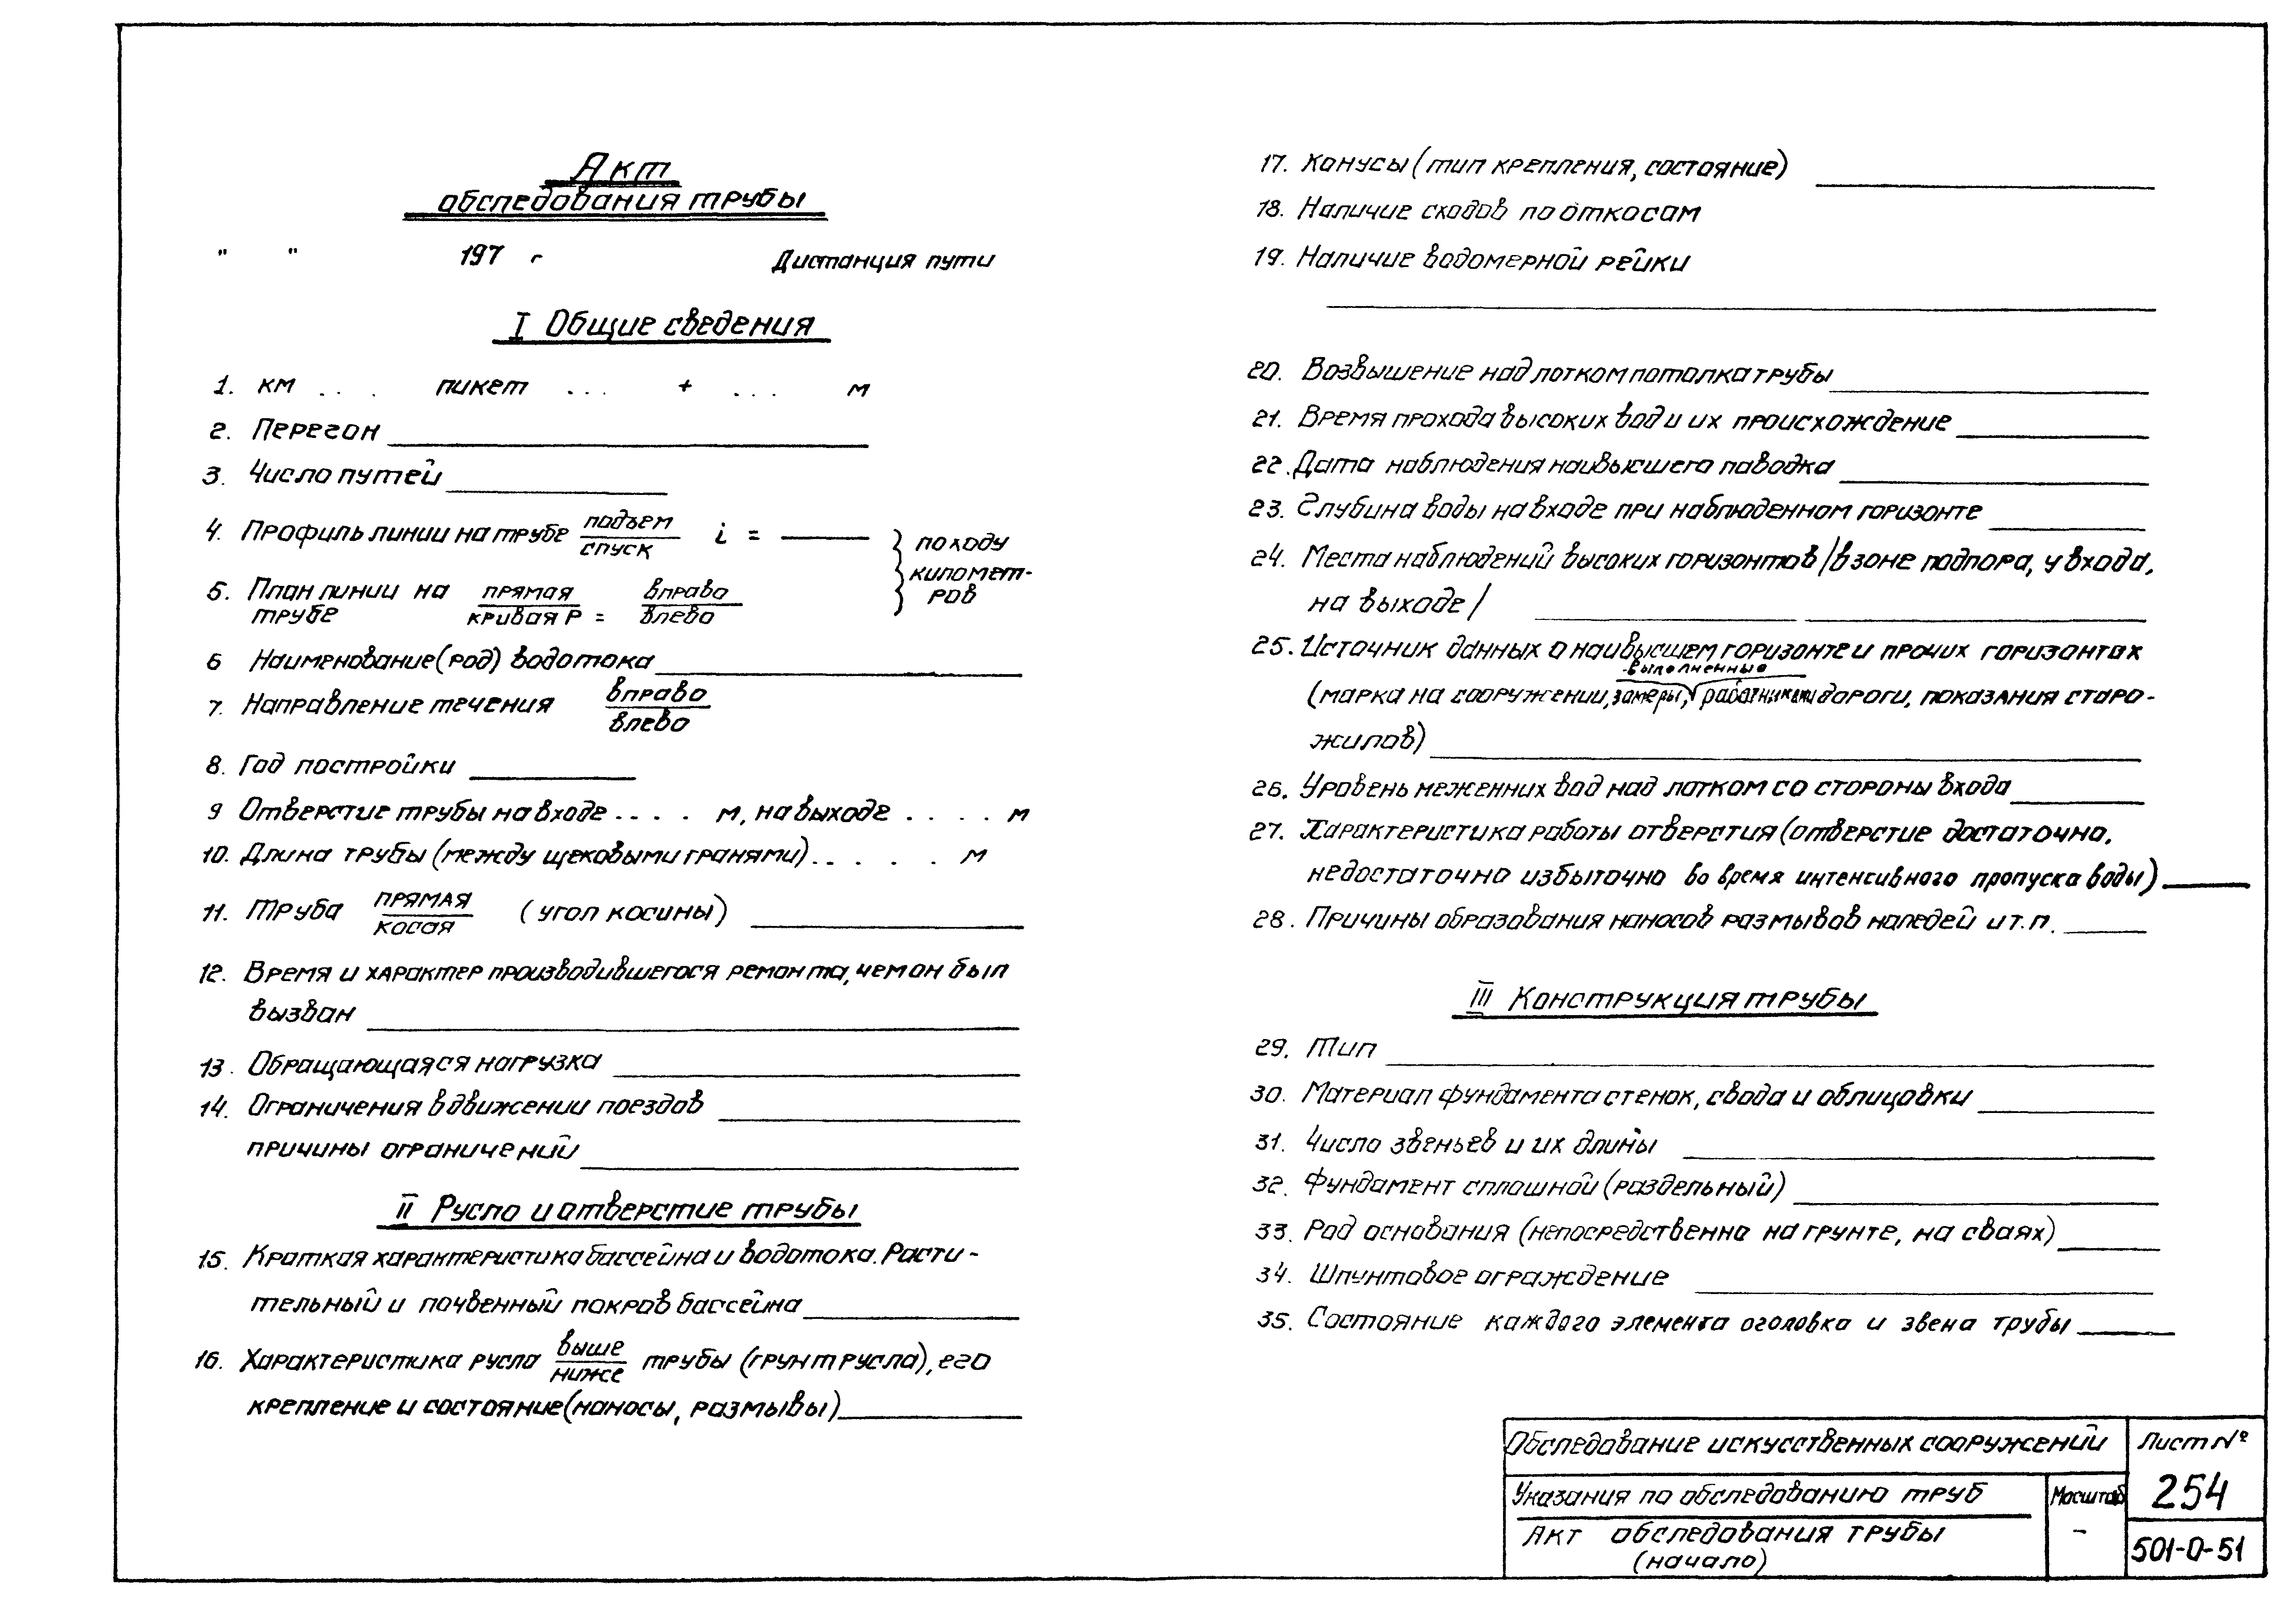 Акт
обследования трубы
" " 197 г Дистанция пути
I Общие сведения
1. км . . . пикет . . . + . . . м
2. Перегон
3. Число путей
4. Профиль линии на трубе подъем / спуск i = по ходу километ-ров
5. План линии на трубе прямая / кривая Р = вправо / влево
6 Наименование (род) водотока
7. Направление течения вправо / влево
8. Год постройки
9 Отверстие трубы на входе . . . . м, на выходе . . . . м
10. Длина трубы (между щековыми гранями) . . . . . м
11. Труба прямая / косая (угол косины)
12. Время и характер производившегося ремонта, чем он был
вызван
13. Обращающаяся нагрузка
14. Ограничения в движении поездов
причины ограничений
II Русло и отверстие трубы
15. Краткая характеристика бассейна и водотока. Расти-
тельный и почвенный покров бассейна
16. Характеристика русла выше / ниже трубы (грунт русла), его
крепление и состояние (наносы, размывы)
17. Конусы (тип крепления, состояние)
18. Наличие сходов по откосам
19. Наличие водомерной рейки
20. Возвышение над лотком потолка трубы
21. Время прохода высоких вод и их происхождение
22. Дата наблюдения наивысшего паводка
23. Глубина воды на входе при наблюденном горизонте
24. Места наблюдений высоких горизонтов /в зоне подпора, у входа,
на выходе/
25. Источник данных о наивысшем горизонте и прочих горизонтах
(марка на сооружении, замеры, выполненные работниками дороги, показания старо-
жилов)
26. Уровень меженних вод над лотком со стороны входа
27. Характеристика работы отверстия (отверстие достаточно,
недостаточно избыточно во время интенсивного пропуска воды)
28. Причины образования наносов размывов наледей и т.п.
III Конструкция трубы
29. Тип
30. Материал фундамента стенок, свода и облицовки
31. Число звеньев и их длины
32. Фундамент сплошной (раздельный)
33. Род основания (непосредственно на грунте, на сваях)
34. Шпунтовое ограждение
35. Состояние каждого элемента оголовка и звена трубы
Обследование искусственных сооружений
Лист №
254
Указания по обследованию труб
Масштаб
-
Акт обследования трубы
(начало)
501-0-51